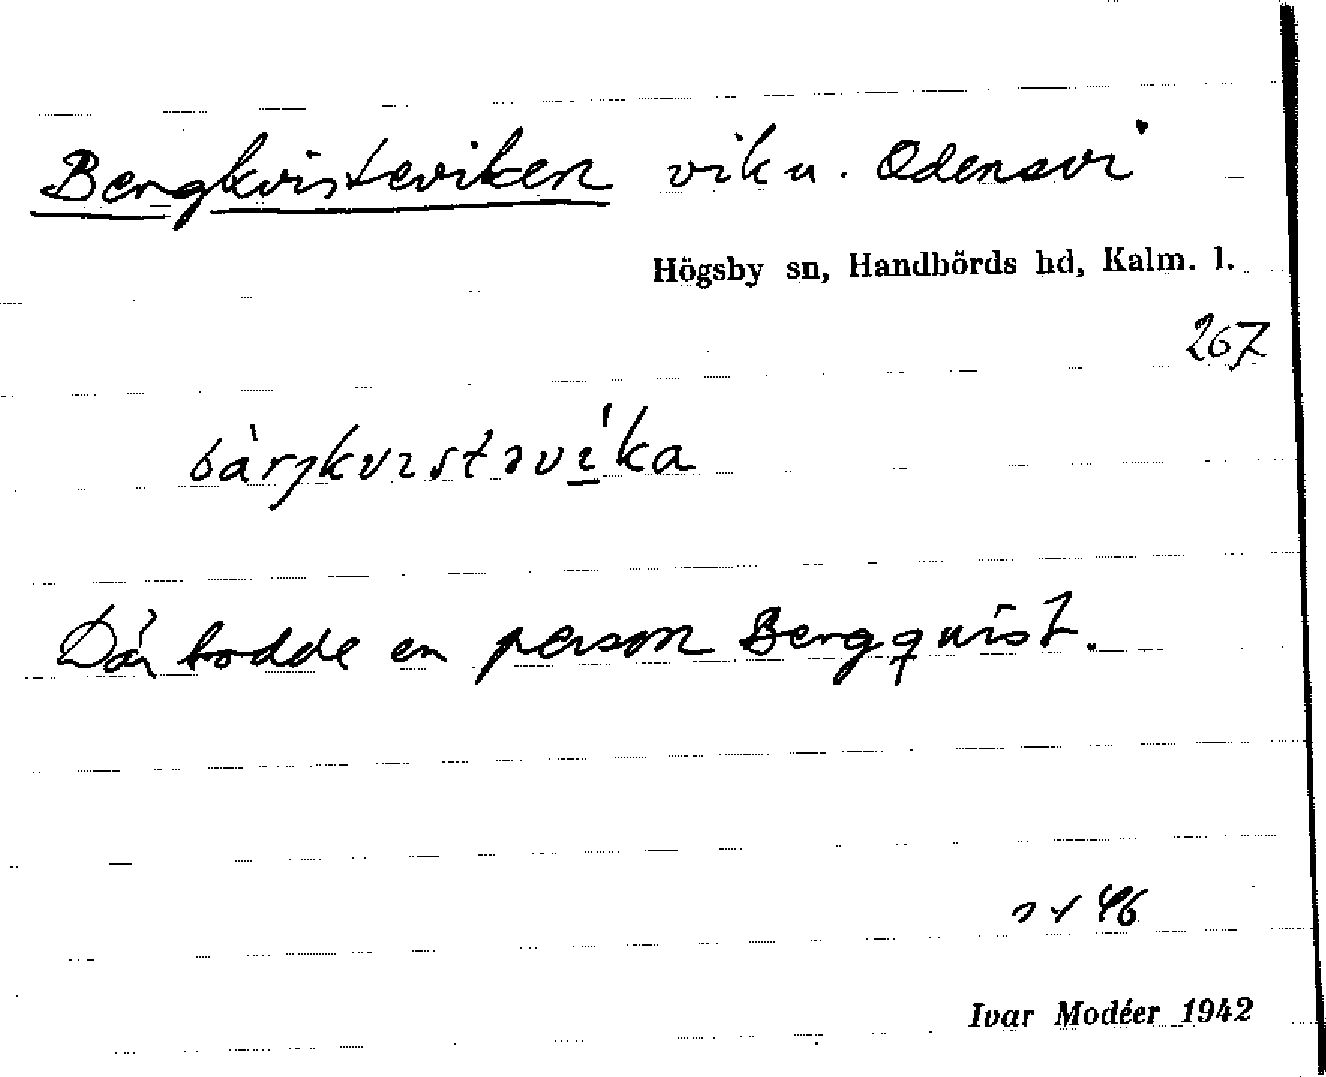 Bergkvisteviken vik u. Odensvi
Högsby sn, Handbörds hd, Kalm. l.
267
bàrjkvɪstəvíka
Där bodde en person Bergqvist.
46
Ivar Modéer 1942